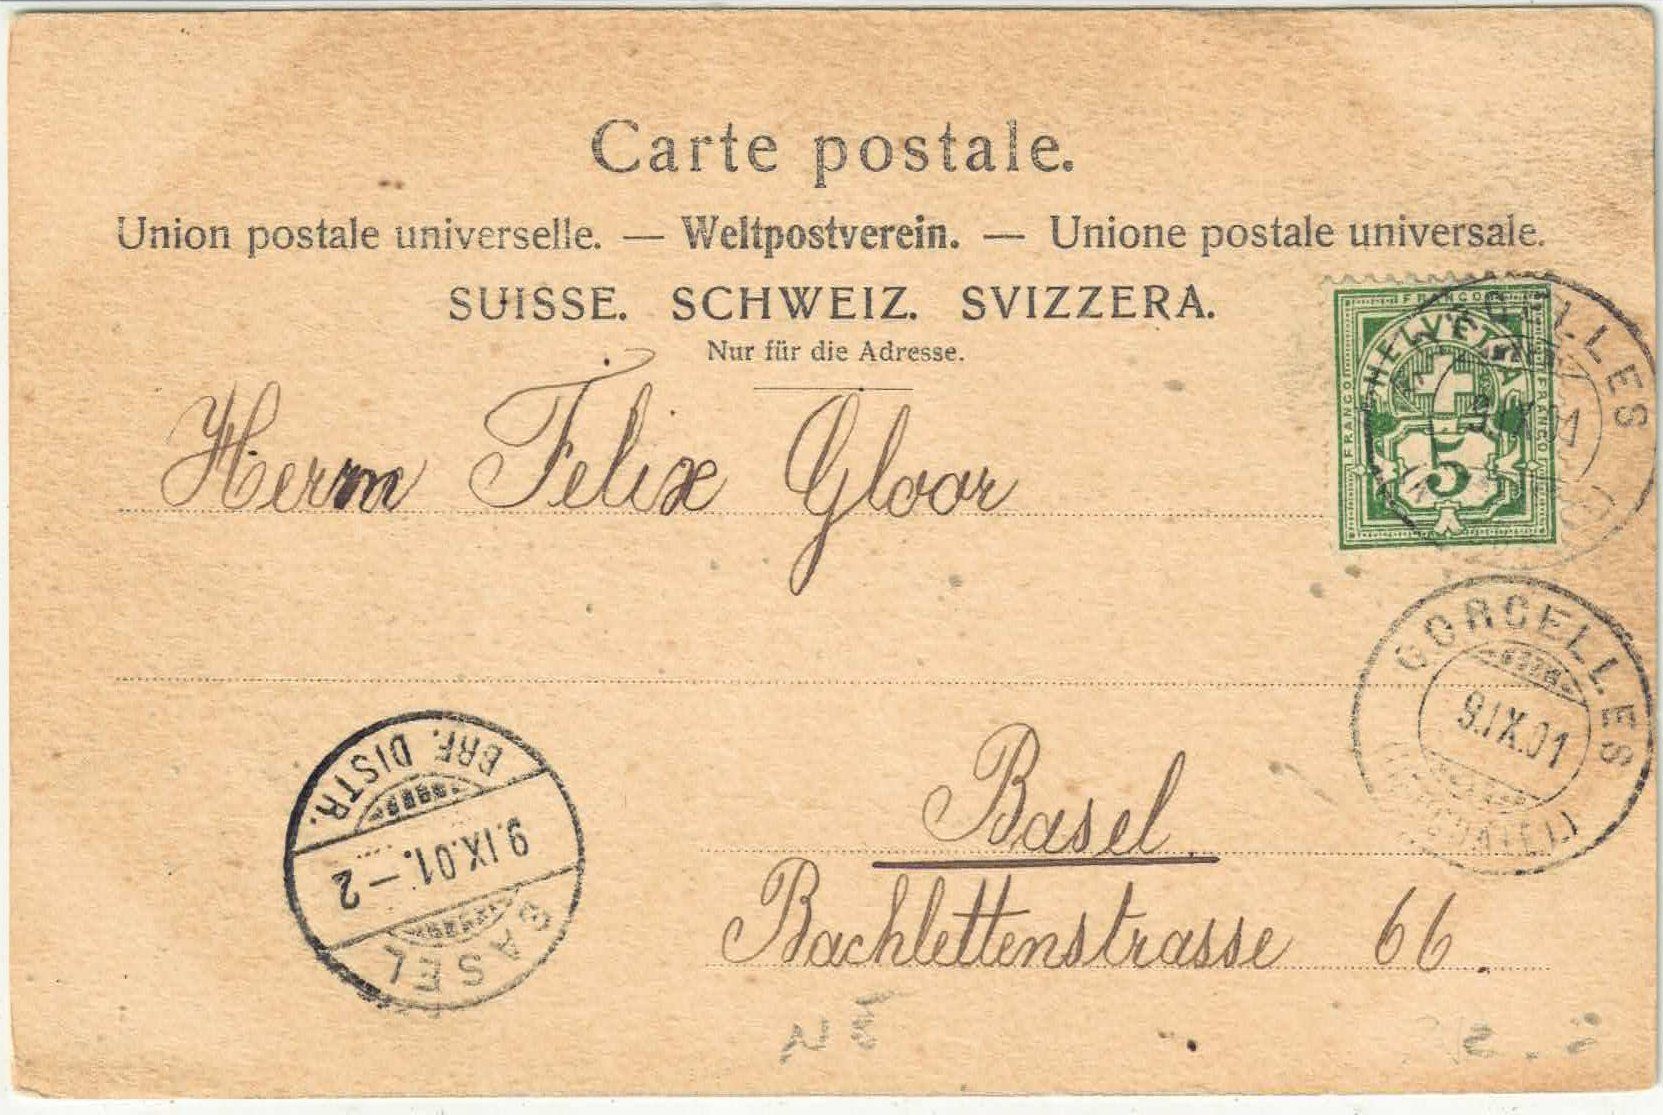 Carte postale.
Union postale universelle. — Weltpostverein. — Unione postale universale.
SUISSE. SCHWEIZ. SVIZZERA.
Nur für die Adresse.
FRANCO
FRANCO
FRANCO
HELVETIA
5
Herrn Felix Gloor
CORCELLES
9.IX.01
(NEUCHATEL)
Basel
Bachlettenstrasse 66.
BRF. DISTR.
9.IX.01.–2
BASEL